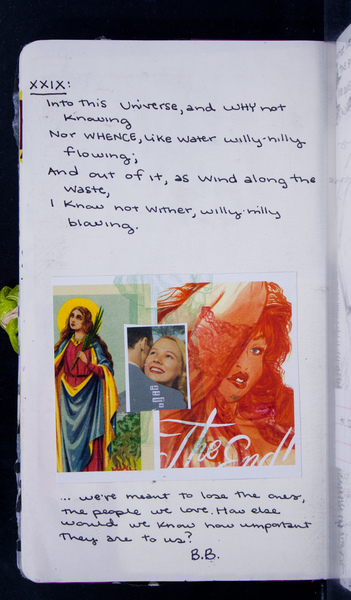 XXIX:
Into this Universe, and WHY not
Knowing
Nor WHENCE, like water willy-nilly
flowing;
And out of it, as wind along the
Waste,
I Know not wither, willy-nilly
blowing.
The End!
... we're meant to lose the ones,
the people we love. How else
would we know how important
they are to us?
B.B.